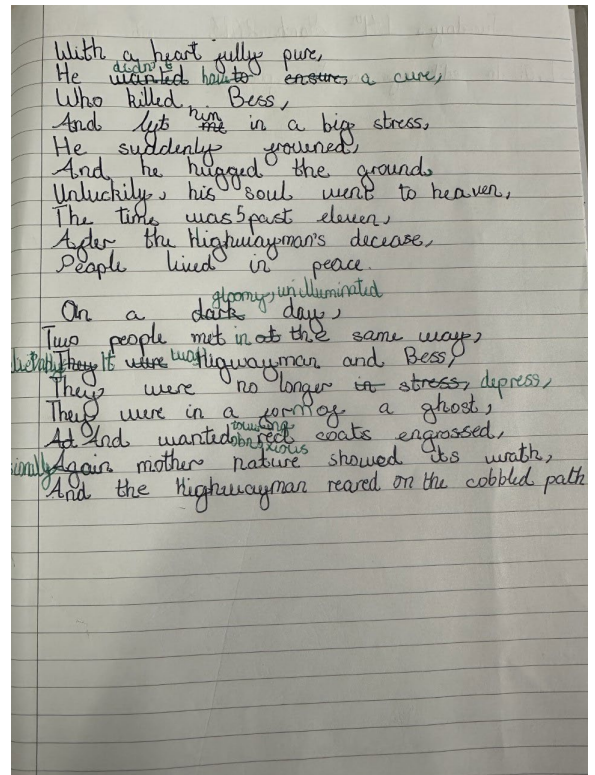 With a heart fully pure,
He didn't wanted have to ensure, a cure,
Who killed, Bess,
And lets him me in a big stress,
He suddenly frowned,
And he hugged the ground.
Unluckily, his soul went to heaven,
The time was 5 past eleven,
After the Highwayman's decease,
People lived in peace.
gloomy, unilluminated
On a dark day,
Two people met in at the same way,
They It were was Higwayman and Bess,
They were no longer in stress, depress,
They were in a form of a ghost,
Ad And wanted obnoxious red coats engrossed,
Again mother nature showed its wrath,
And the Highwayman reared on the cobbled path